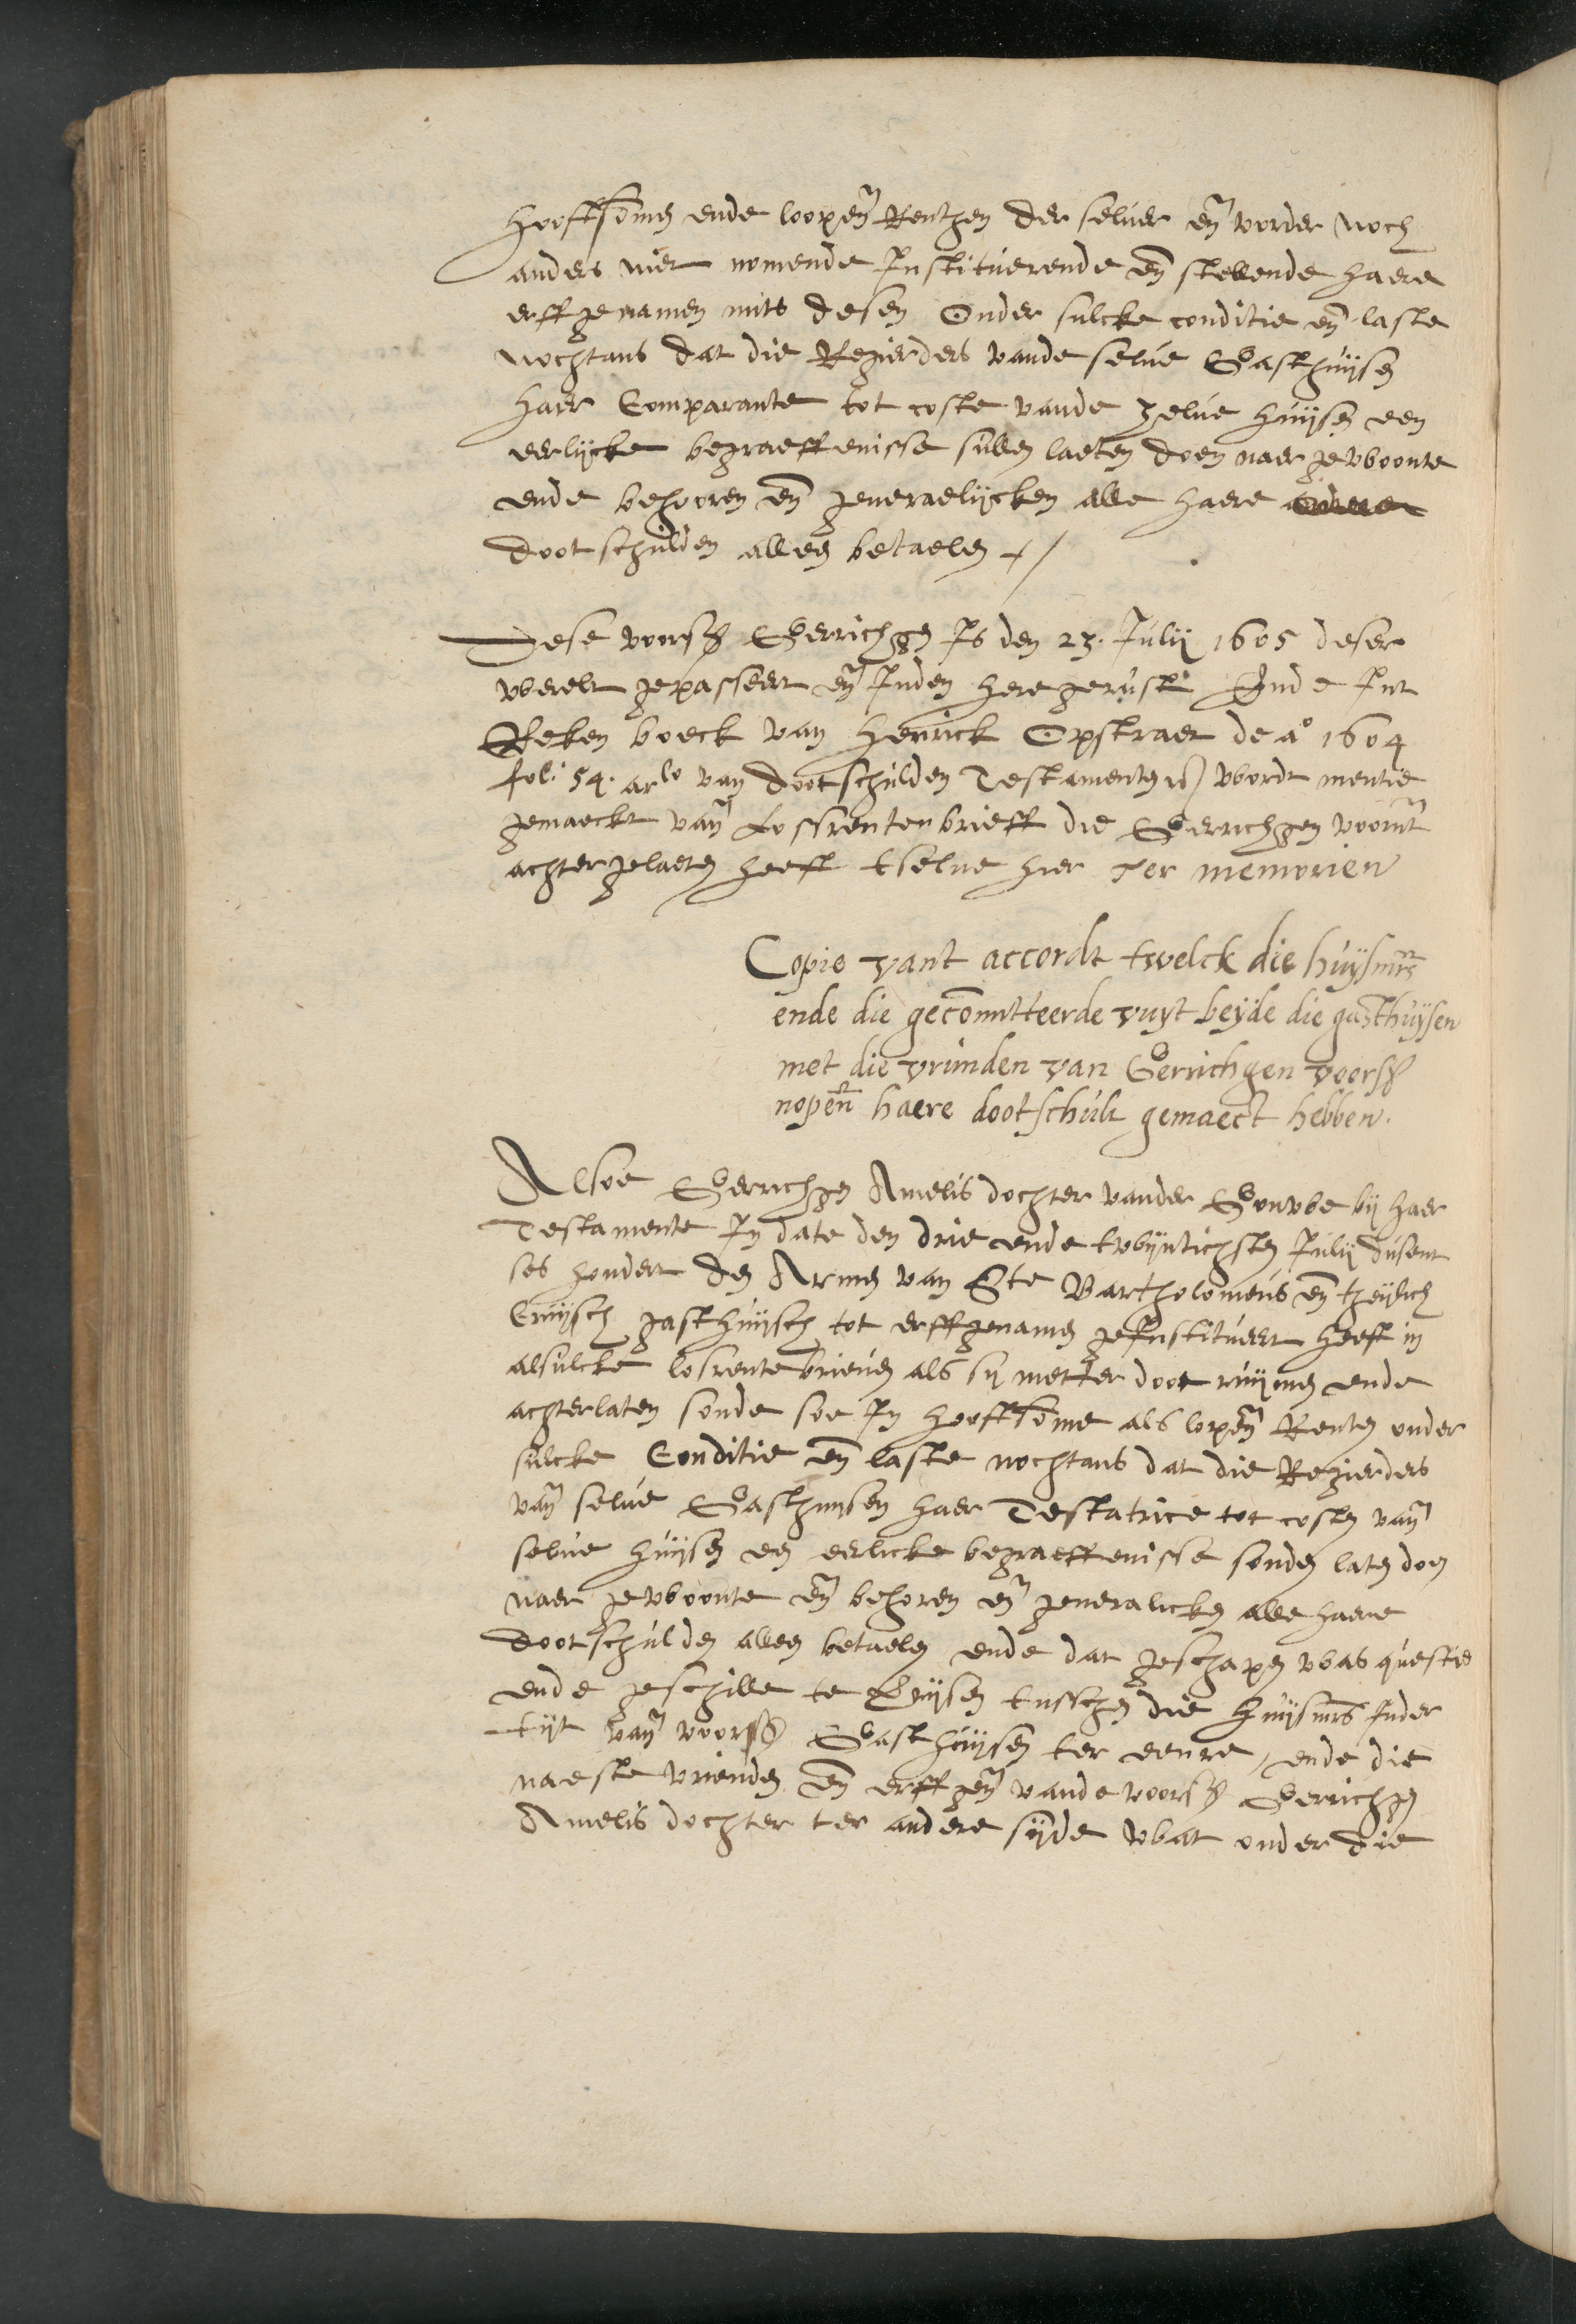 hooftsomen ende loopen̄ Renthen der selver en̄ vorder noch
anders niet nomende Instituerende en̄ stellende haere
erffgenamen mits desen Onder sulcke conditie en̄ laste
nochtans dat die Regierders vande selve Gasthuijsen
haer Comparante tot coste vande zelve huijsen een
eerlijcke begraeffenisse sullen laeten doen naer gewoonte
ende behooren en̄ generaelijcken alle haere
dootschulden alleen betaelen
Dese voors Gerrichgen Is den 23. Julij 1605 deser
werelt gepasseert en̄ Inden here gerust Ende Int
Reken boeck van Henrick Opstraet de aº 1604
fol: 54. arlo van dootschulden Testamenten wordt mentie
gemaeckt van̄ Lossrentenbrieff die Gerrichgen voornt
achtergelaten heeft tselve hier Ter memorien
Copie vant accordt twelck die huijsmrs
ende die gecom̄itteerde vuyt beijde die gasthuijsen
met die vrunden van Gerrichgen voors
nopen̄ haere dootschult gemaect hebben.
Alsoe Gerrichgen Amelis dochter vander Gouwe bij haer
Testamente In date den drie ende twijntichsten Julij dusent
ses hondert den Armen van Ste Bartholomeus en̄ theijlich
Cruijsch gasthuijsch tot erffgenamen geInstitueert heeft in
alsulcke losrentebrieven als sij metter doot ruijmen ende
achterlaten soude soe In hooftsom̄e als lopen̄ Renten onder
sulcke Conditie en̄ laste nochtans dat die Regierders
van̄ selve Gasthuijsen haer Testatrice tot costen van̄
selve huijsen een eerlicke begraeffenisse souden laten doen
naer gewoonte en̄ behoren en̄ generalicken alle haere
dootschulden alleen betaelen ende dat geschapen was questie
ende geschille te Rijsen tusschen die huijsmrs Inder
tijt van̄ voors Gasthuijsen ter eenre, ende die
naeste vrienden en̄ erffgen̄ vande voors Gerrichgen
Amelis dochter ter andere sijde wat onder die